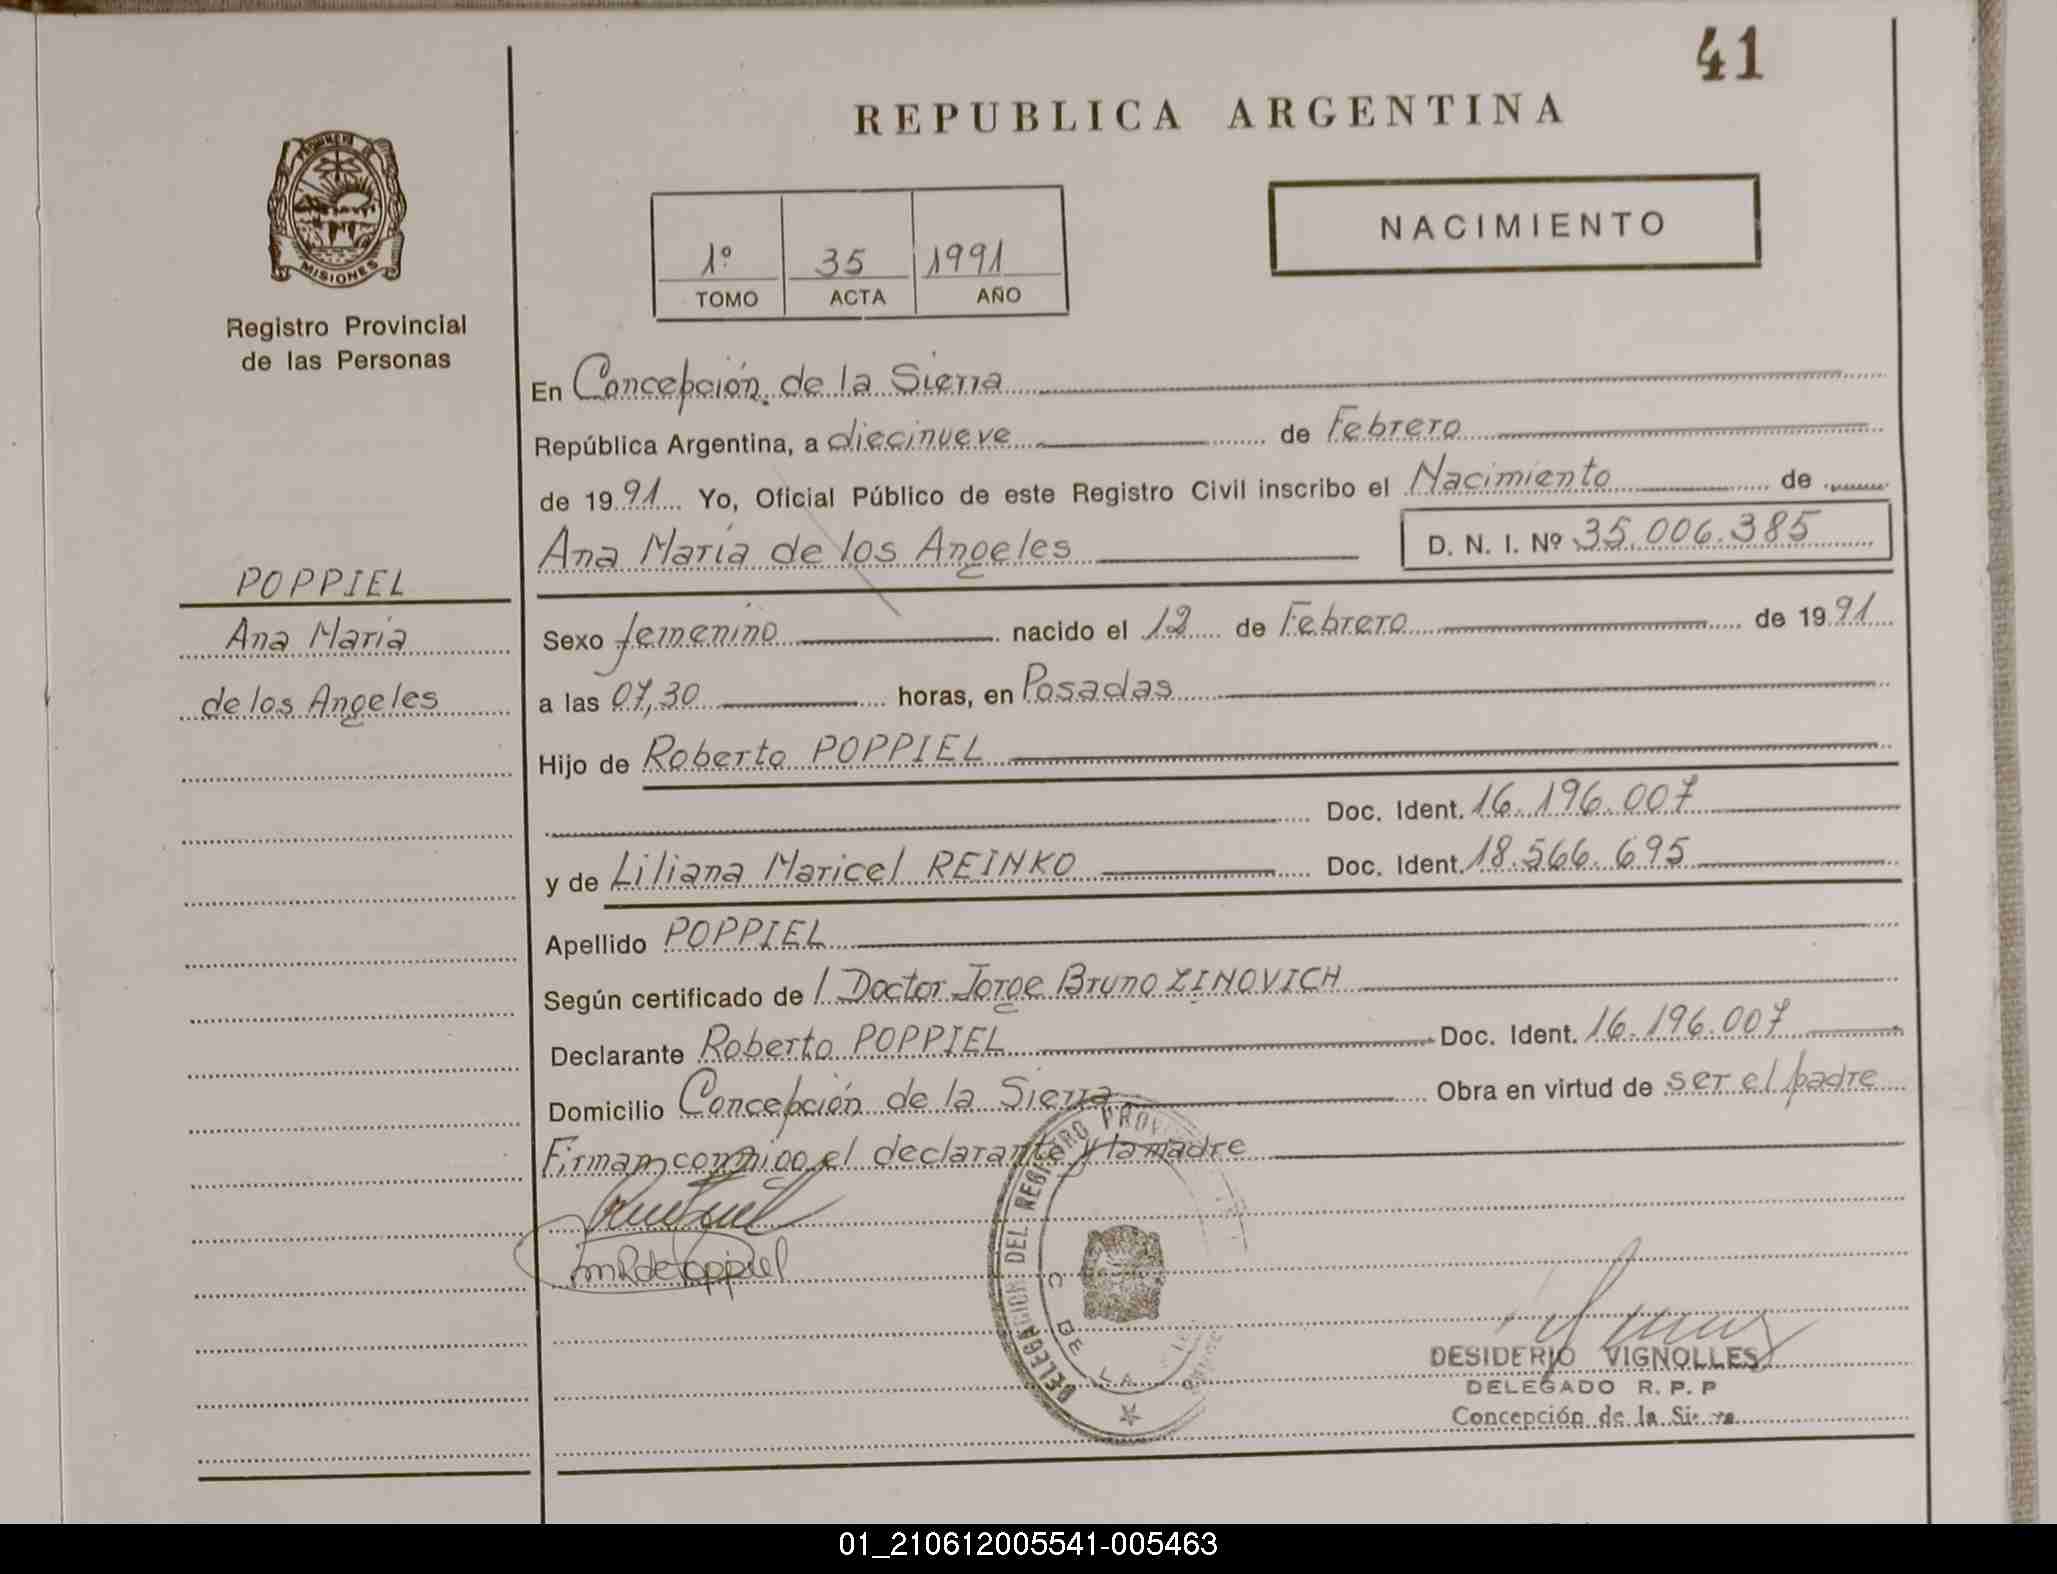 41
REPUBLICA ARGENTINA
PROVINCIA
MISIONES
Registro Provincial
de las Personas
1º 35 1991
TOMO ACTA AÑO
NACIMIENTO
En Concepción de la Sierra
República Argentina, a diecinueve de Febrero
de 1991 Yo, Oficial Público de este Registro Civil inscribo el Nacimiento de
Ana María de los Angeles D. N. I. Nº 35.006.385
POPPIEL
Ana María
de los Angeles
Sexo femenino nacido el 12 de Febrero de 1991
a las 07,30 horas, en Posadas
Hijo de Roberto POPPIEL
Doc. Ident. 16.196.007
y de Liliana Maricel REINKO Doc. Ident. 18.566.695
Apellido POPPIEL
Según certificado de l Doctor Jorge Bruno ZINOVICH
Declarante Roberto POPPIEL Doc. Ident. 16.196.007
Domicilio Concepción de la Sierra Obra en virtud de ser el padre
Firman conmigo el declarante y la madre
DELEGACION DEL REGISTRO PROV
C DE LA
DESIDERIO VIGNOLLES
DELEGADO R. P. P
Concepción de la Sierra
01_210612005541-005463